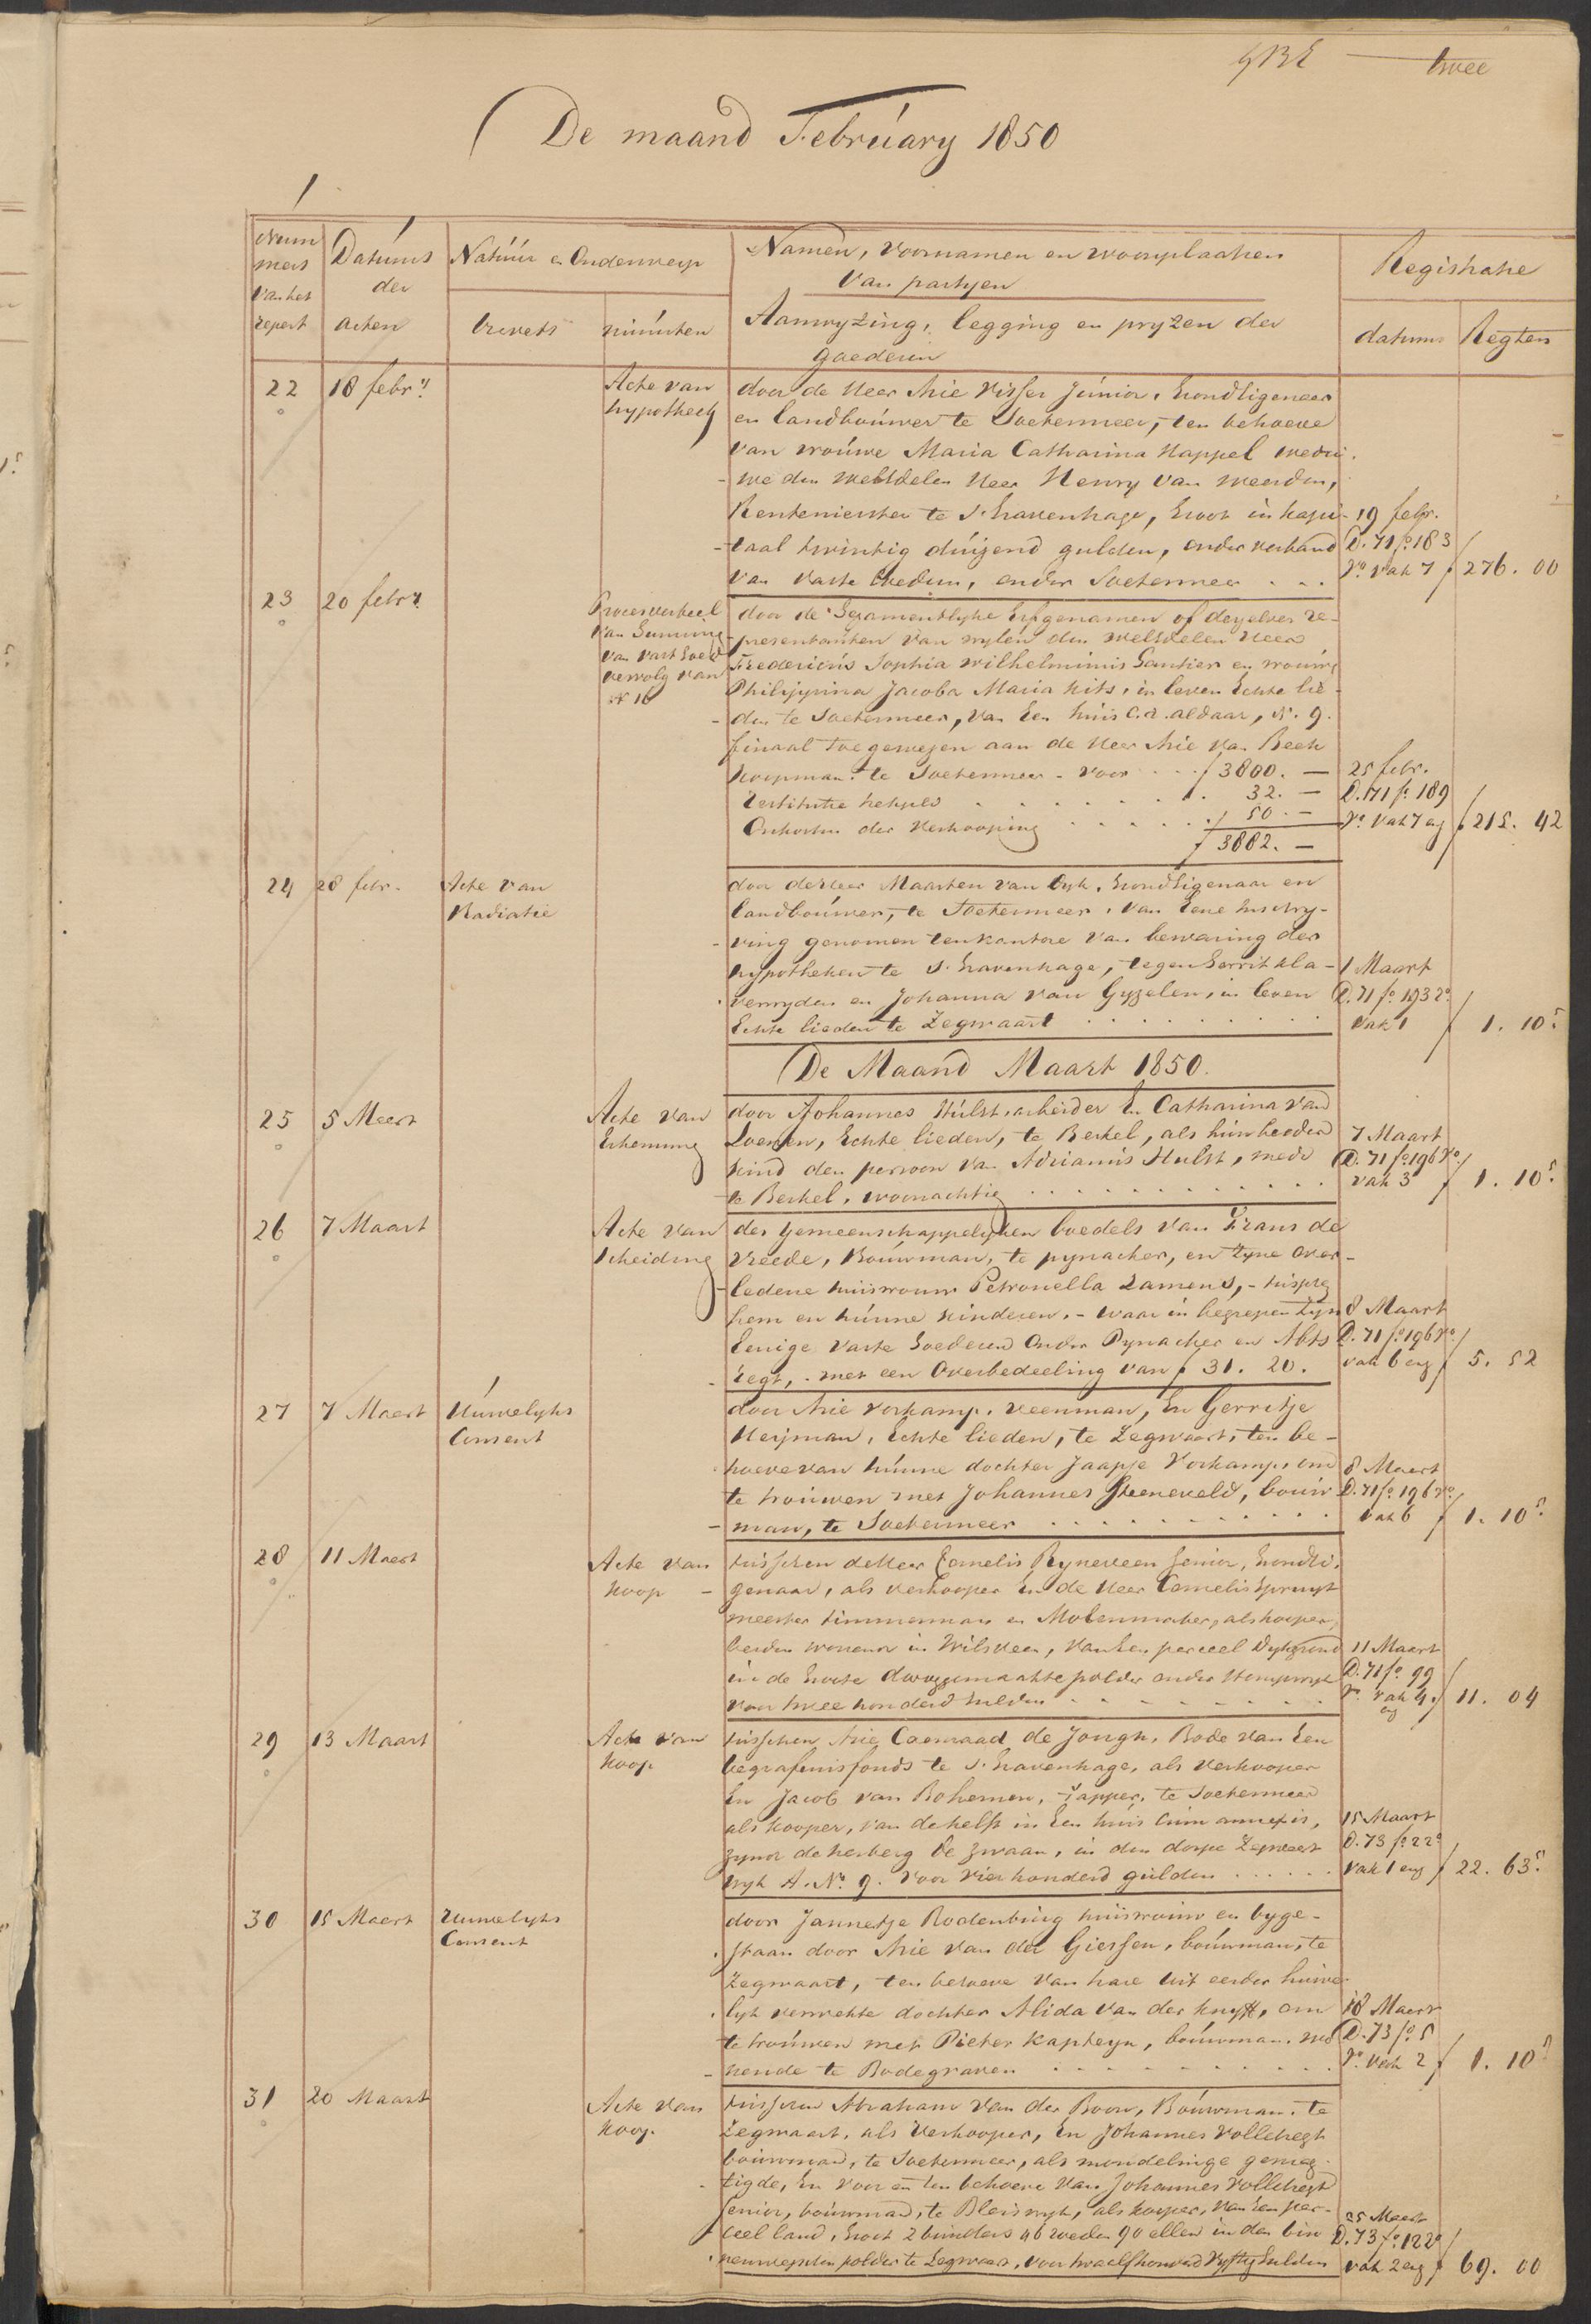 twee
De maand February 1850
Num
mers
van het
repert
Datums
der
acten
Natuur en Onderwerp
brevets
minuten
Namen, Voornamen en woonplaatsen
van partyen
Aanwyzing, legging en pryzen der
goederen
Registratie
datums
Regten
22
18 febry
Acte van
hypotheek
door de Heer Arie Visser Junior, Grondeigenaar
en landbouwer te Soetermeer, ten behoeve
van vrouwe Maria Catharina Happel wedu-
-we den weledelen Heer Henry van Meerden,
Rentenierster te s'Gravenhage, groot in kapi-
-taal twintig duizend gulden, onder verband
van vaste Goederen, onder Soetermeer . . .
19 febr.
D. 71 fo. 183
ro. vak 7
f 276. 00
23
20 febry
Procesverbaal
van Gunning
van vast Goed
vervolg van
N 16
door de Gezamentlyke Erfgenamen of derzelver re-
-presentanten van wylen den weledelen Heer
Fredericus Sophia Wilhelminus Gantier en vrouwe
Philippina Jacoba Maria Kits, in leven Echte lie-
-den te Soetermeer, van Een huis c.a. aldaar, N. 9.
finaal toegewezen aan de Heer Arie van Beek
koopman te Soetermeer - voor . . . f 3800. —
restitutie . . . . . . 32. —
Onkosten der Verkooping . . . . . 50. —
f 3882. —
25 febr.
D. 71 fo. 189
ro. vak 7 en
f 215. 42
24
28 febr.
Acte van
Radiatie
door de Heer Maarten van Dyk, Grondeigenaar en
landbouwer, te Soetermeer, van Eene Inschry-
-ving genomen ten kantore van bewaring der
hypotheken te s'Gravenhage, tegen Gerrit Kla-
verwyden en Johanna van Gyzelen, in leven
Echte lieden te Zegwaart . . . . . . . . .
1 Maart
D. 71 fo. 193 ro.
vak 1
f 1. 10 5
De Maand Maart 1850.
25
5 Maart
Acte van
Erkenning
door Johannes Hulst, arbeider En Catharina van
Loenen, Echte lieden, te Berkel, als hun beider
kind den persoon van Adrianus Hulst, mede
te Berkel, woonachtig . . . . . . . . . . .
7 Maart
D. 71 fo. 196 ro.
vak 3
f 1. 10 5
26
7 Maart
Acte van
Scheiding
des gemeenschappelyken boedels van Frans de
Vreede, Bouwman, te pynacker, en zyne over-
-ledene huisvrouw Petronella Lamens, - tusschen
hem en hunne kinderen, - waar in begrepen zyn
Eenige vaste Goederen Onder Pynacker en Abts
regt, - met een Overbedeeling van f 31. 20.
8 Maart
D. 71 fo. 196 ro.
vak 6 en
f 5. 52
27
7 Maart
Huwelyks
Consent
door Arie Verkamp, veenman, En Gerritje
Heijman, Echte lieden, te Zegwaart, ten be-
hoeve van hunne dochter Jaapje Verkamp, om
te trouwen met Johannes Steeneveld, bouw
-man, te Soetermeer . . . . . . . . . . .
8 Maart
D. 71 fo. 196 ro.
vak 6
f 1. 10 5
28
11 Maart
Acte van
Koop
tusschen de Heer Cornelis Ryneveen senior, Grondei-
genaar, als verkooper En de Heer Cornelis Spruyt
meester timmerman en Molenmaker, als kooper,
beiden wonende in Wilsveen, van Een perceel Dykgrond
in de Groote drooggemaakte polder onder Stompwyk
voor twee honderd Gulden . . . . . . . .
11 Maart
D. 71 fo. 99
ro. vak 4
en
f 11. 04
29
13 Maart
Acte van
Koop
tusschen Arie Caemaad de Jongh, Bode van Een
begrafenisfonds te s'Gravenhage, als verkooper
En Jacob van Bohemen, Tapper, te Soetermeer
als kooper, van de helft in Een huis Cum annexis,
zynde de herberg de zwaan, in den dorpe Zegwaart
wyk A. No. 9. voor vier honderd gulden . . . . .
15 Maart
D. 73 fo. 2 ro
vak 1 en
f 22. 63 5
30
15 Maart
Huwelyks
Consent
door Jannetje Rodenburg huisvrouw en byge-
staan door Arie van der Giessen, bouwman, te
Zegwaart, ten behoeve van hare uit eerder huwe
lyk verwekte dochter Alida van der Knyff, om
te trouwen met Pieter Kapteyn, bouwman, wo
-nende te Bodegraven . . . . . . . . . . .
18 Maart
D. 73 fo. 5
ro. vak 2
f 1. 10 5
31
20 Maart
Acte van
Koop.
tusschen Abraham van der Boon, Bouwman, te
Zegwaart, als Verkooper, En Johannes Vollebregt
bouwman, te Soetermeer, als mondelinge gemag-
tigde, En voor en ten behoeve van Johannes Vollebregt
senior, bouwman, te Bleiswyk, als kooper, van Een per-
ceel land, Groot 2 bunders 46 roeden 90 ellen in den bin
nenwegschen polder te Zegwaart, voor twaalfhonderd vyftig Gulden
25 Maart
D. 73 fo. 12 ro
vak 2 en
f 69. 00